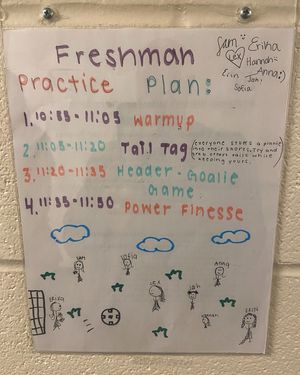 Freshman
Sam Erika
Lex Hannah
Erin Jah Anna:)
Sofia
Practice Plan:
1. 10:55 - 11:05 Warmup
2. 11:05 - 11:20 Tail Tag (everyone steves a pinnie
into their shorts, try and
grab others tails while
keeping yours.
3. 11:20 - 11:35 Header - Goalie
Game
4. 11:35 - 11:50 Power Finesse
SAM
Sofia
Anna
ERIKA
LEX
Jah
Hannah
ERIN